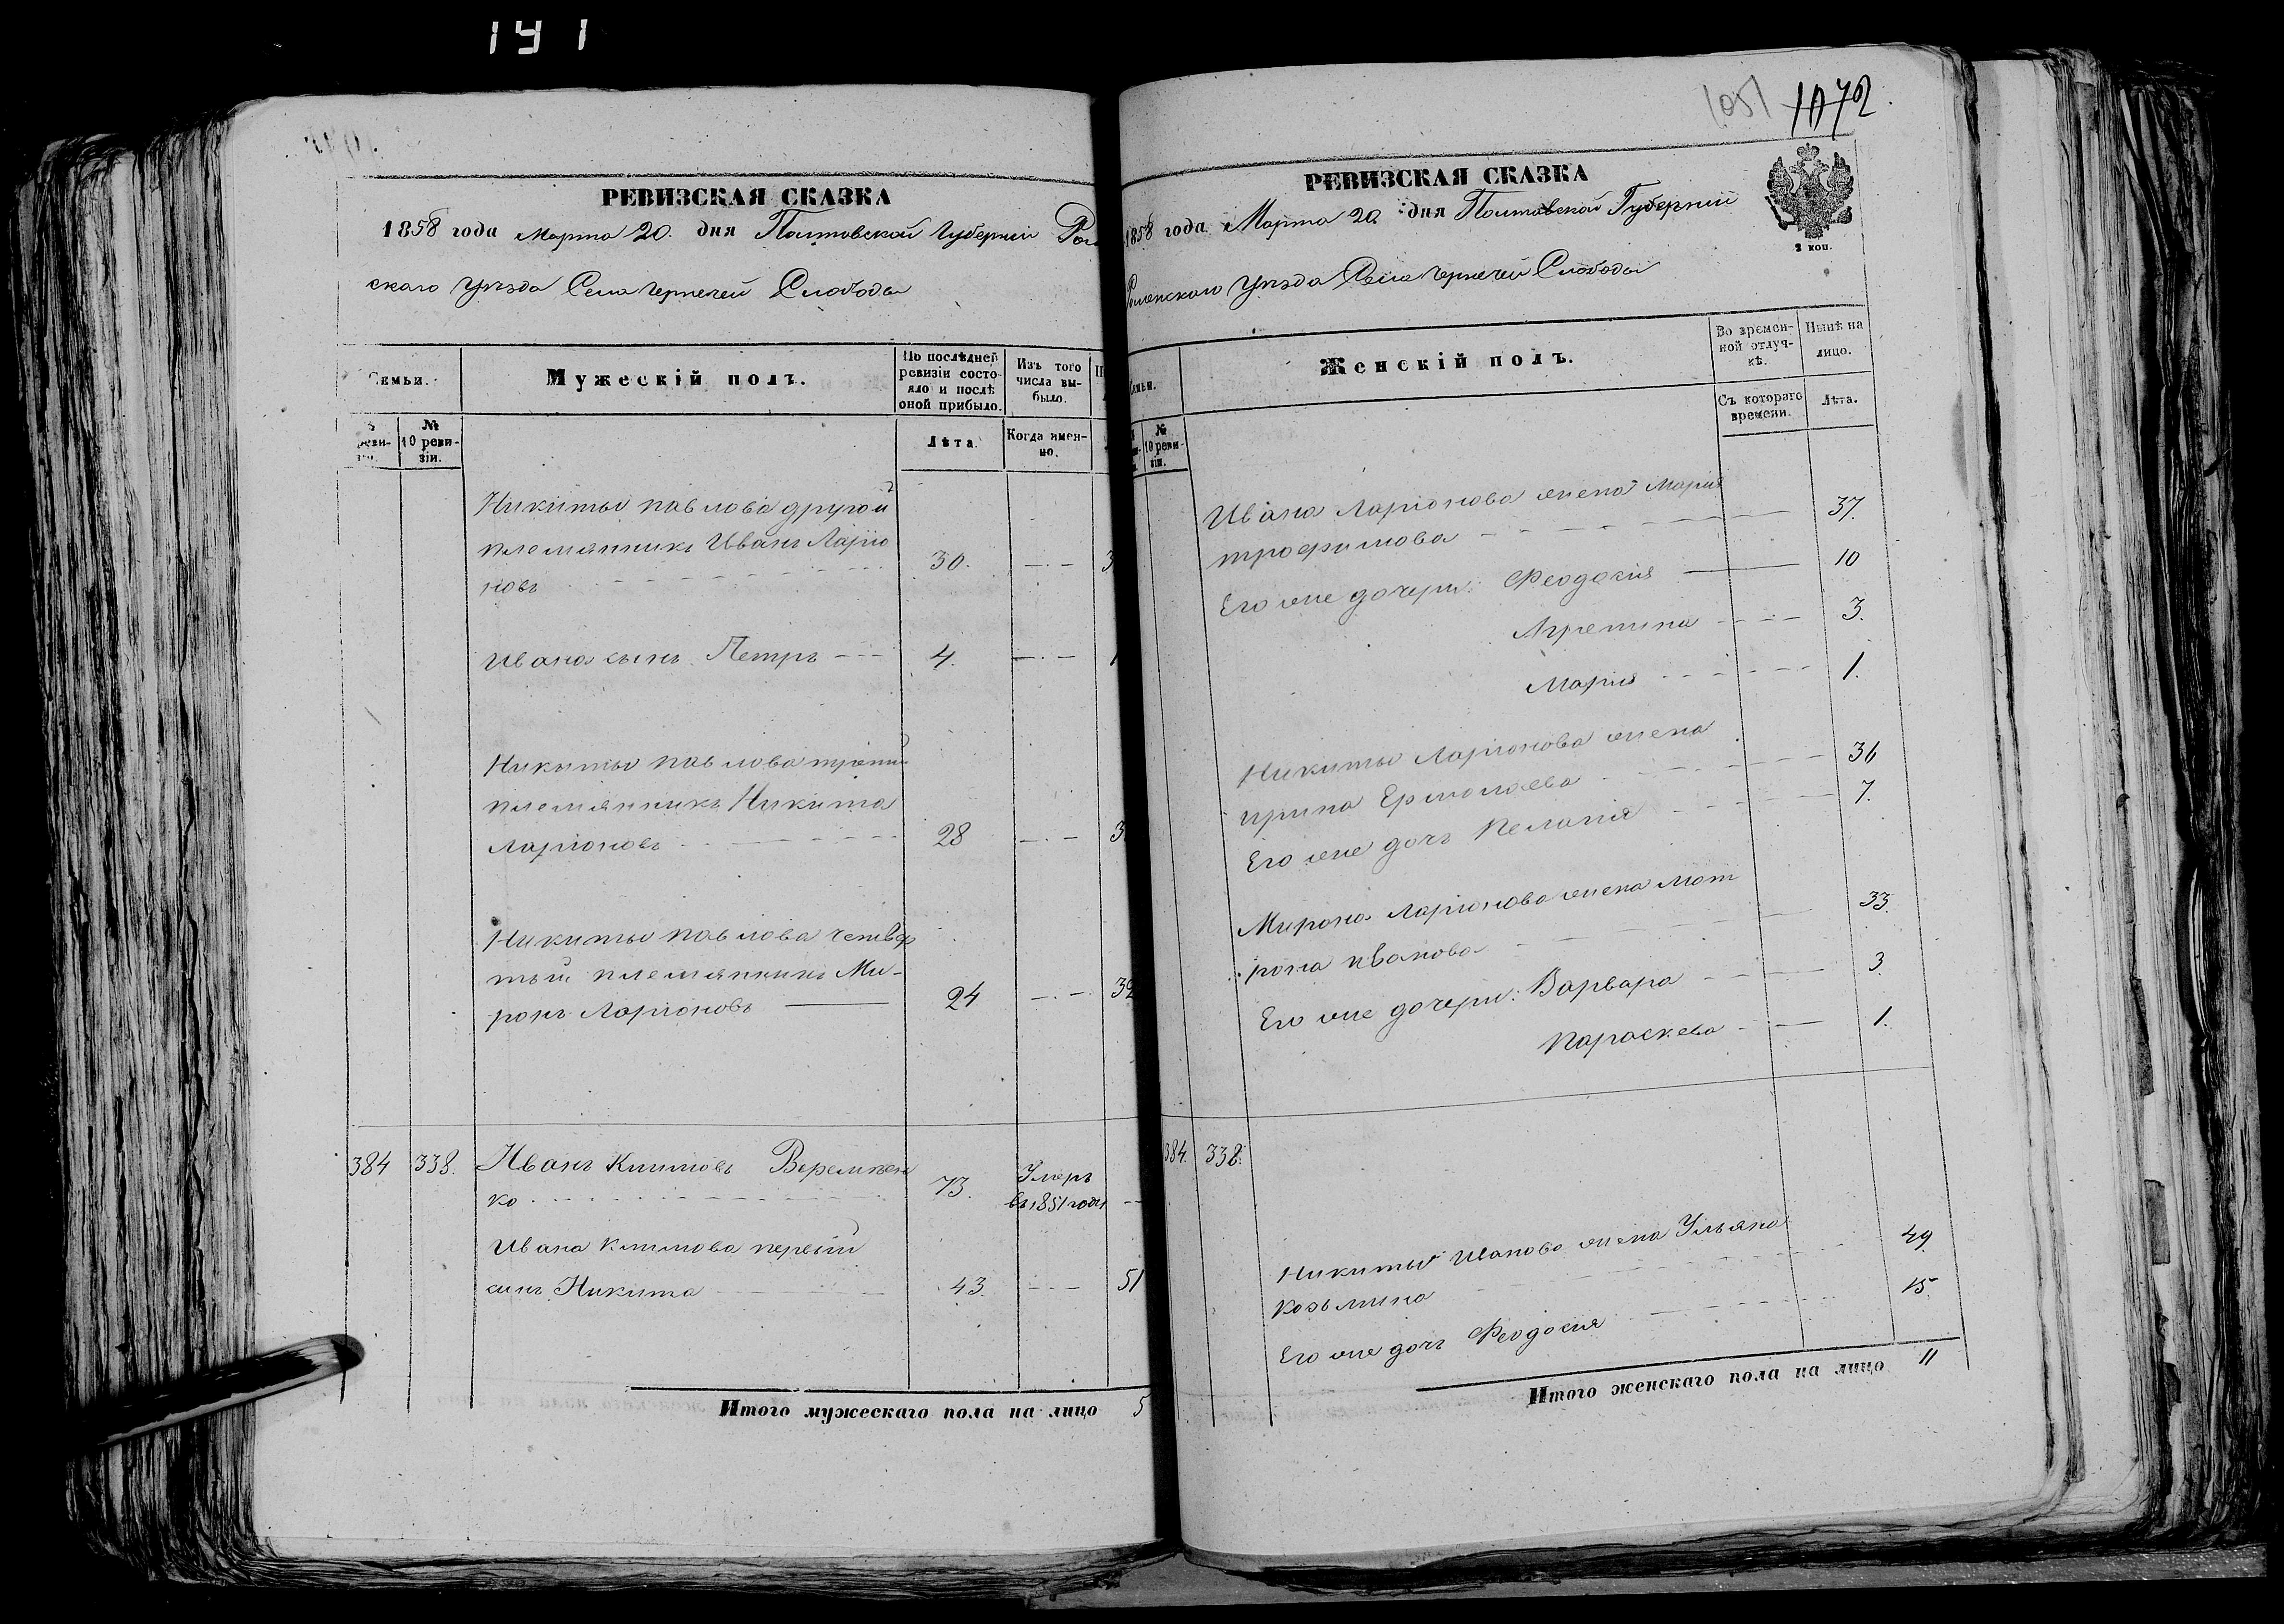 141
РЕВИЗСКАЯ СКАЗКА
1858 года Марта 20. дня Полтавской Губернии Ром
скаго Уѣзда Села Чернечей Слободы
Семьи.
Мужескій полъ.
По послѣдней ревизіи состояло и послѣ оной прибыло.
Изъ того числа выбыло.
№ 10 ревизіи.
Лѣта.
Когда именно.
Никиты павлова другой
племянникъ Иванъ Ларіо
новъ 30.
Ивана сынъ Петръ 4.
Никиты павлова третій
племянникъ Никита
Ларіоновъ 28
Никиты павлова четвер
тый племянникъ Ми-
ронъ Ларіоновъ 24 32
384 338. Иванъ Климовъ Веремѣен
ко 73. Умеръ въ 1851 году
Ивана климова первый
сынъ Никита 43. 51
Итого мужескаго пола на лицо 5
1051 1072.
РЕВИЗСКАЯ СКАЗКА
1858 года Марта 20. дня Полтавской Губерніи
2 коп.
Роменскаго Уѣзда Села Чернечей Слободы
Семьи.
Женскій полъ.
Во временной отлучкѣ.
Нынѣ на лицо.
№ 10 ревизіи.
Съ котораго времени.
Лѣта.
Ивана Ларіонова жена Марія
трофимова 37.
Его же дочери: Феодосия 10
Агрепина 3.
Мария 1.
Никиты Ларіонова жена
ирина Ермолаева 36
Его же дочь Пелагия 7.
Мирона Ларіонова жена Мот
рона иванова 33.
Его же дочери: Варвара 3
Параскева 1.
384. 338.
Никиты Иванова жена Ульяна
козьмина 49.
Его же дочь Феодосия 15.
Итого женскаго пола на лицо 11